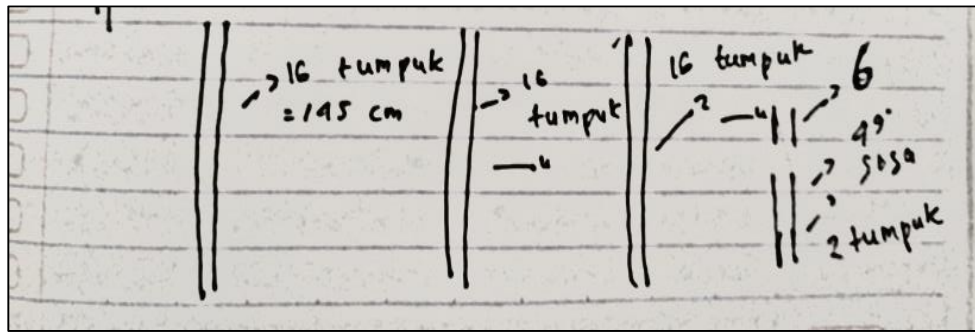 16 tumpuk
= 145 cm
16
tumpuk
— "
16 tumpuk
— "
6
sisa
2 tumpuk